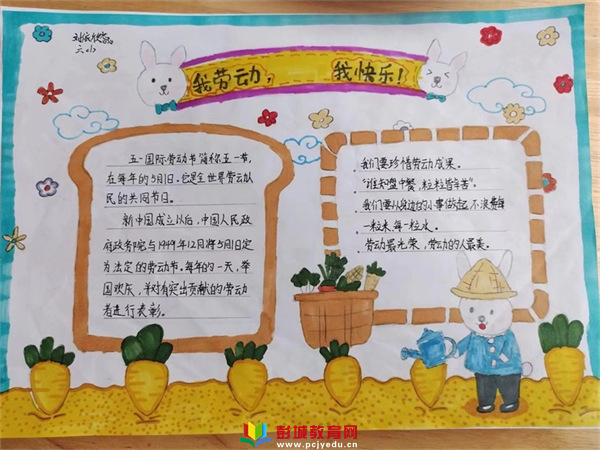 六小
我劳动，我快乐！
五一国际劳动节简称五一节，
在每年的5月1日。它是全世界劳动人
民的共同节日。
新中国成立以后，中国人民政
府政务院与1949年12月将5月1日定
为法定的劳动节。每年的一天，举
国欢庆，并对有突出贡献的劳动
者进行表彰。
我们要珍惜劳动成果。
"谁知盘中餐，粒粒皆辛苦"。
我们要从身边的小事做起，不浪费每
一粒米，每一粒水。
劳动最光荣，劳动的人最美。
彭城教育网
www.pcjyedu.cn